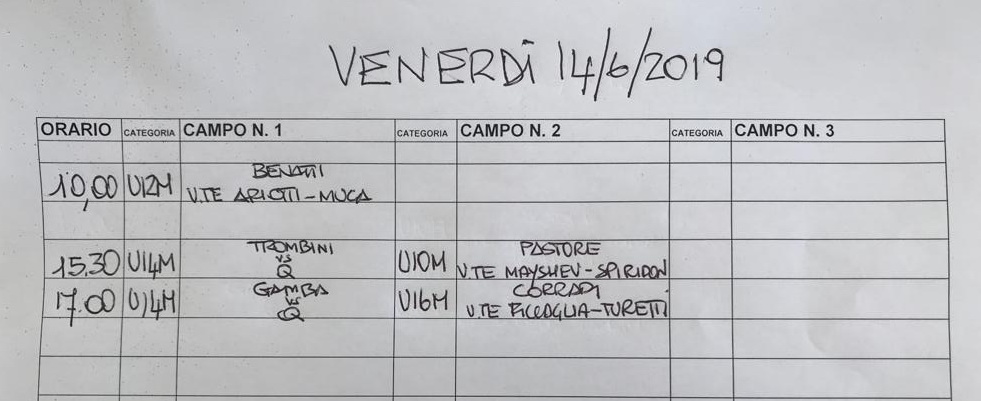 VENERDÌ 14/6/2019
ORARIO CATEGORIA CAMPO N. 1 CATEGORIA CAMPO N. 2 CATEGORIA CAMPO N. 3
10,00 U12M BENATTI
V.TE ARIOTTI-MUCA
15.30 U14M TROMBINI
vs
Q
U10M PASTORE
V.TE MAYSHEV-SPIRIDON
17.00 U14M GAMBA
vs
Q
U16M CORRADI
V.TE PICCAGLIA-TURETTI